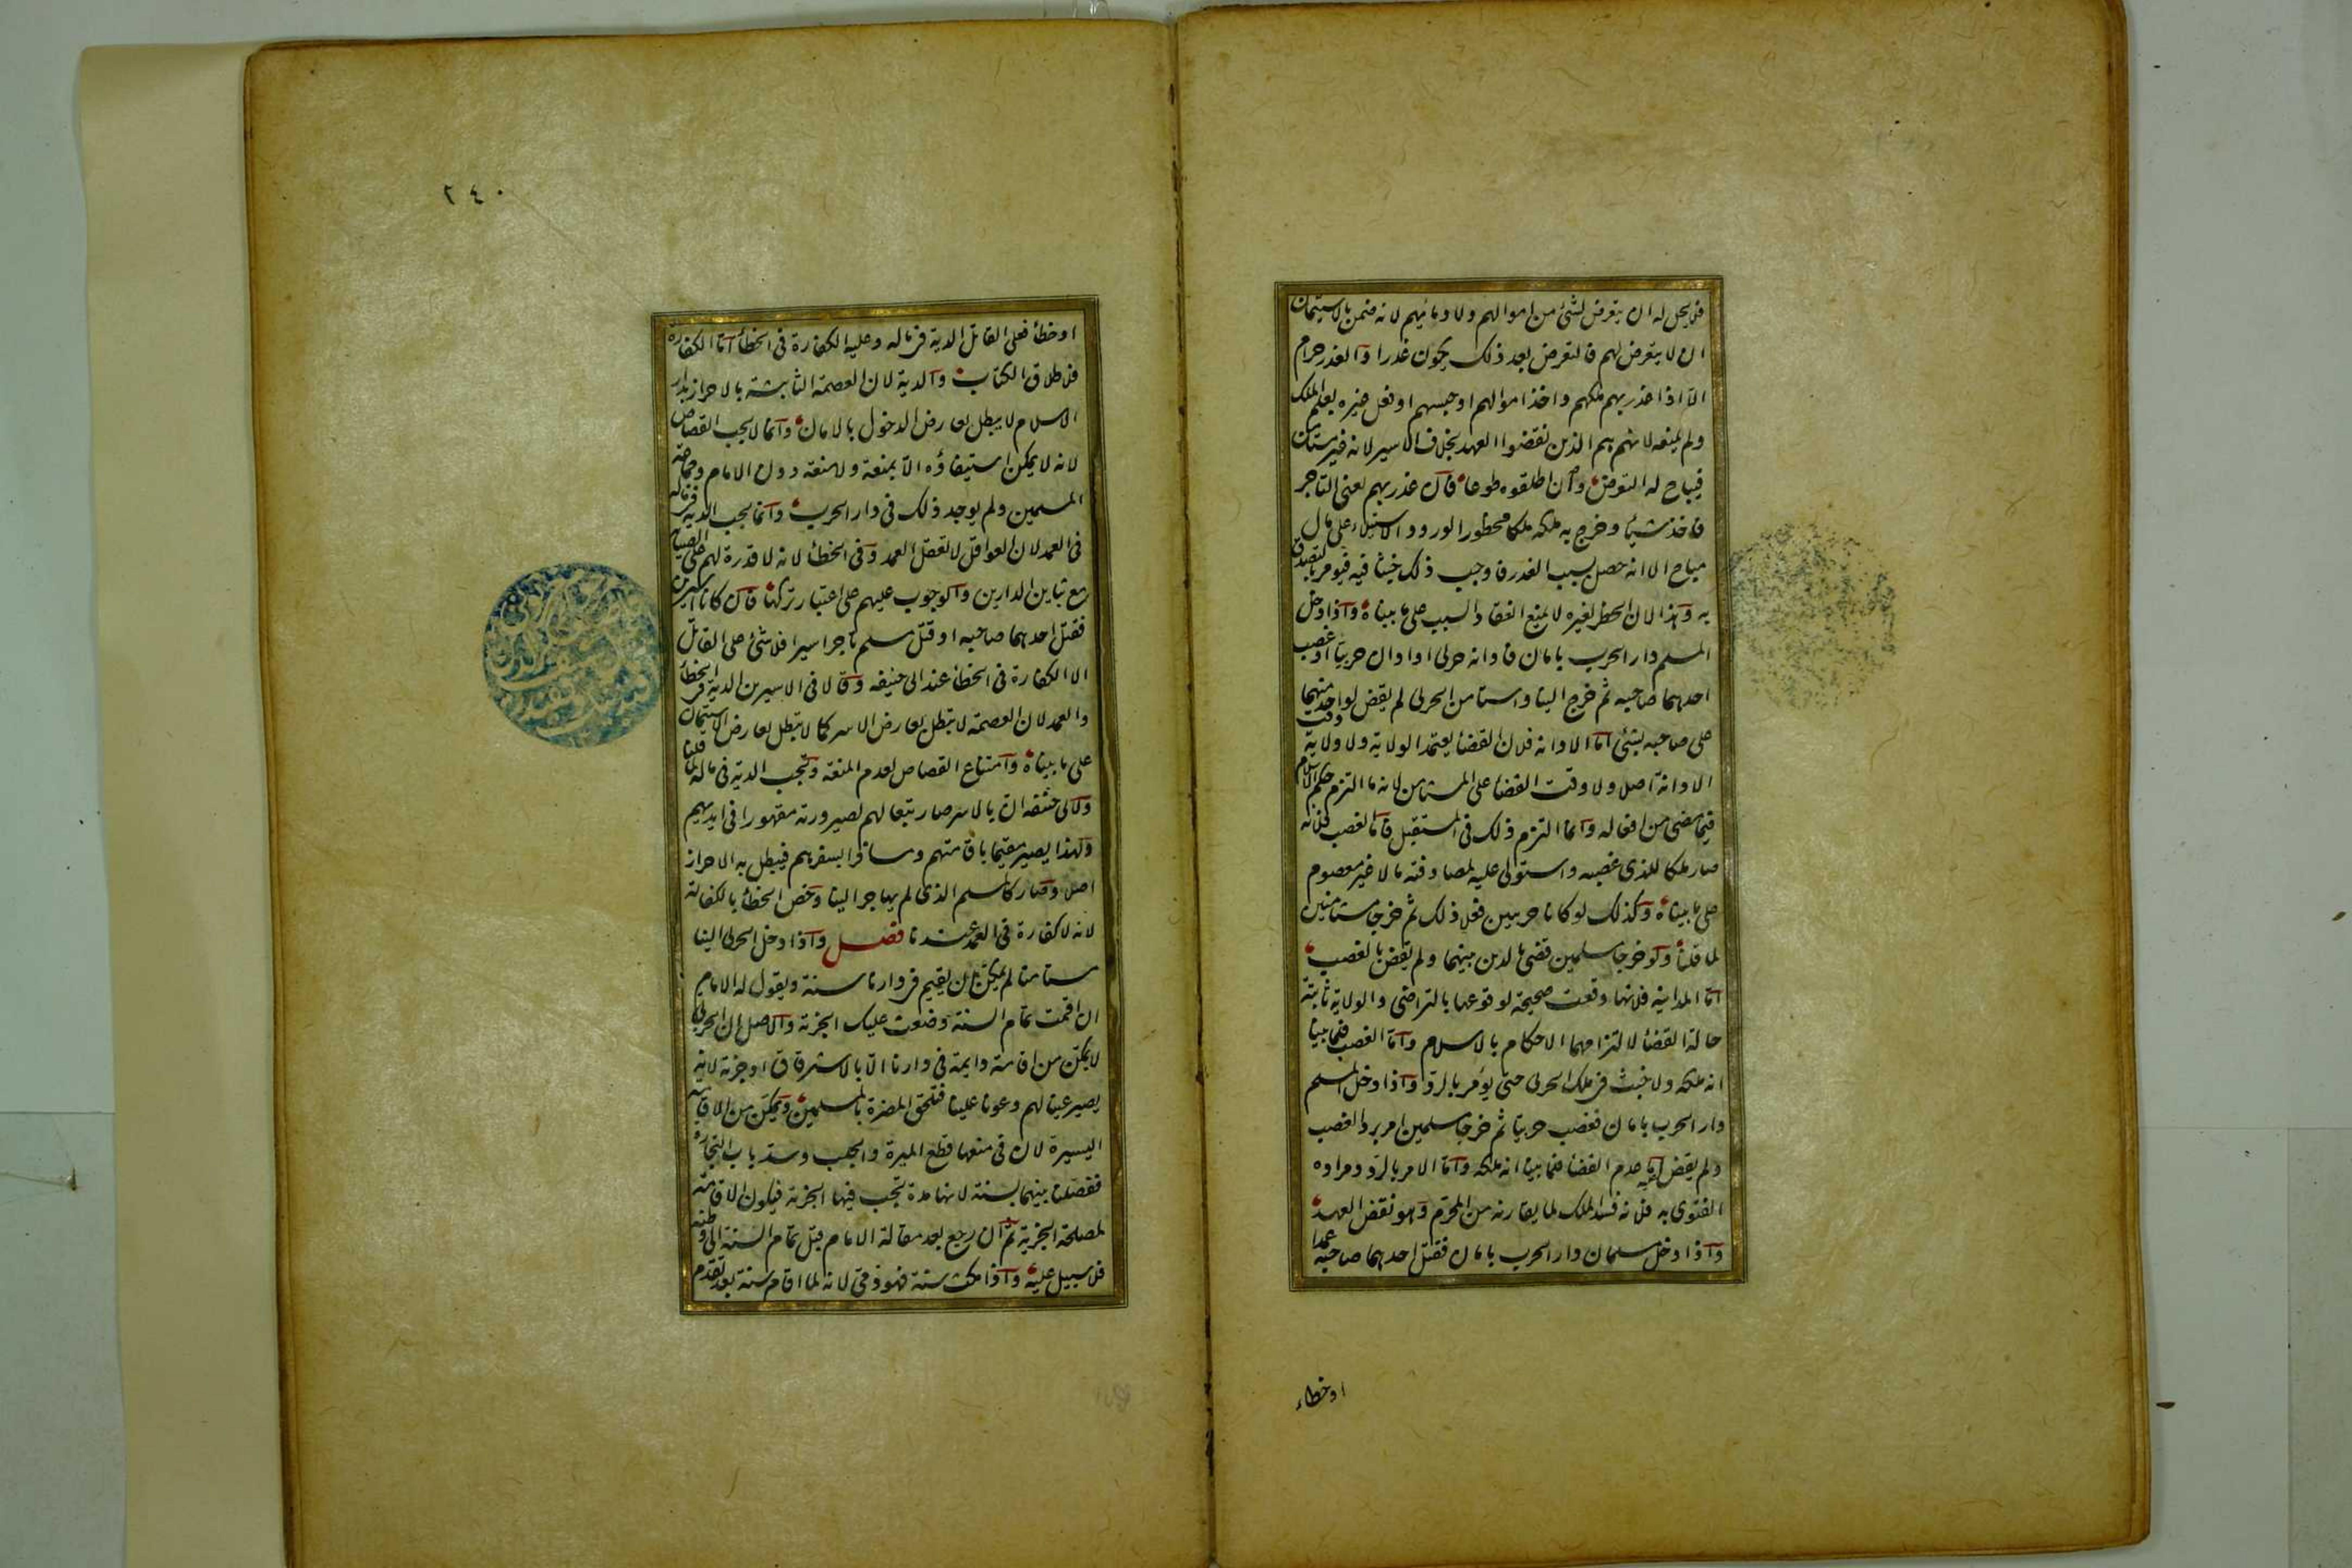 فلا يحل له ان يتعرض لشئ من اموالهم ولا دمائهم لانه ضمن بالاستيمان
ان لا يتعرض لهم فالتعرض بعد ذلك يكون غدرا والغدر حرام
الا اذا غدر بهم ملكهم واخذ اموالهم او حبسهم او فعل غيره بعلم الملك
ولم يمنعه لانهم هم الذين نقضوا العهد بخلاف الاسير لانه غير مستأمن
فيباح له التعرض وان اطلقوه طوعا فان غدر بهم لعنى التاجر
فاخذ شيئا وخرج به ملكه ملكا محظورا لورود الاستيلاء على مال
مباح الا انه حصل بسبب الغدر فاوجب ذلك خبثا فيه فيؤمر بالتصدق
به وهذا لان الحظر لغيره لا يمنع انعقاد السبب على ما بيناه واذا دخل
المسلم دار الحرب بامان فادانه حربى او ادان حربيا او غصب
احدهما صاحبه ثم خرج الينا واستامن الحربى لم يقض لواحد منهما
على صاحبه بشئ اما الادانه فلان القضا يعتمد الولاية ولا ولاية وقت
الادانة اصلا ولا وقت القضا على المستامن لانه ما التزم حكم الاسلام
فيما مضى من افعاله وانما التزم ذلك فى المستقبل فاما الغصب فلانه
صار ملكا للذى غصبه واستولى عليه لمصادفته مالا غير معصوم
على ما بيناه وكذلك لو كانا حربيين فعلا ذلك ثم خرجا مستامنين
لما قلنا ولو خرجا مسلمين قضى بالدين بينهما ولم يقض بالغصب
اما المداينة فلانها وقعت صحيحة لوقوعها بالتراضى والولاية ثابتة
حالة القضا لالتزامهما الاحكام بالاسلام واما الغصب فلما بينا
انه ملكه ولا خبث فى ملك الحربى حتى يؤمر بالرد واذا دخل المسلم
دار الحرب بامان فغصب حربيا ثم خرجا مسلمين امر برد الغصب
ولم يقض عليه اما عدم القضا فلما بينا انه ملكه واما الامر بالرد ومراده
الفتوى به فلانه فسد الملك لما يقارنه من المحرم وهو نقض العهد
واذا دخل مسلمان دار الحرب بامان فقتل احدهما صاحبه عمدا
او خطاء
٢٤٠
او خطأ فعلى القاتل الدية فى ماله وعليه الكفارة فى الخطأ اما الكفارة
فلاطلاق الكتاب والدية لان العصمة الثابتة بالاحراز بدار
الاسلام لا يبطل بعارض الدخول بالامان وانما لا يجب القصاص
لانه لا يمكن استيفاؤه الا بمنعة ولا منعة دون الامام وجماعة
المسلمين ولم يوجد ذلك فى دار الحرب وانما يجب الدية فى ماله
فى العمد لان العواقل لا تعقل العمد وفى الخطأ لانه لا قدرة لهم على الصيانة
مع تباين الدارين والوجوب عليهم على اعتبار تركها فان كانا اسيرين
فقتل احدهما صاحبه او قتل مسلم تاجر اسيرا فلا شئ على القاتل
الا الكفارة فى الخطأ عند ابى حنيفه وقالا فى الاسيرين الدية فى الخطأ
والعمد لان العصمة لا تبطل بعارض الاسر كما لا تبطل بعارض الاستيمان
على ما بيناه وامتناع القصاص لعدم المنعة وتجب الدية فى ماله لما قلنا
ولابى حنيفه ان بالاسر صار تبعا لهم لصيرورته مقهورا فى ايديهم
ولهذا يصير مقيما باقامتهم ومسافرا بسفرهم فيبطل به الاحراز
اصلا وصار كالمسلم الذى لم يهاجر الينا وخص الخطأ بالكفارة
لانه لا كفارة فى العمد عندنا فصل واذا دخل الحربى الينا
مستامنا لم يمكن ان يقيم فى دارنا سنة ويقول له الامام
ان اقمت تمام السنة وضعت عليك الجزية والاصل ان الحربى
لا يمكن من اقامة دايمة فى دارنا الا بالاسترقاق او جزية لانه
يصير عينا لهم وعونا علينا فتلحق المضرة بالمسلمين ويمكن من الاقامة
اليسيرة لان فى منعها قطع الميرة والجلب وسد باب التجارة
ففصلنا بينهما بسنة لانها مدة تجب فيها الجزية فيكون الاقامة
لمصلحة الجزية ثم ان رجع بعد مقالة الامام قبل تمام السنة الى وطنه
فلا سبيل عليه واذا مكث سنة فهو ذمى لانه لما اقام سنة بعد تقدم